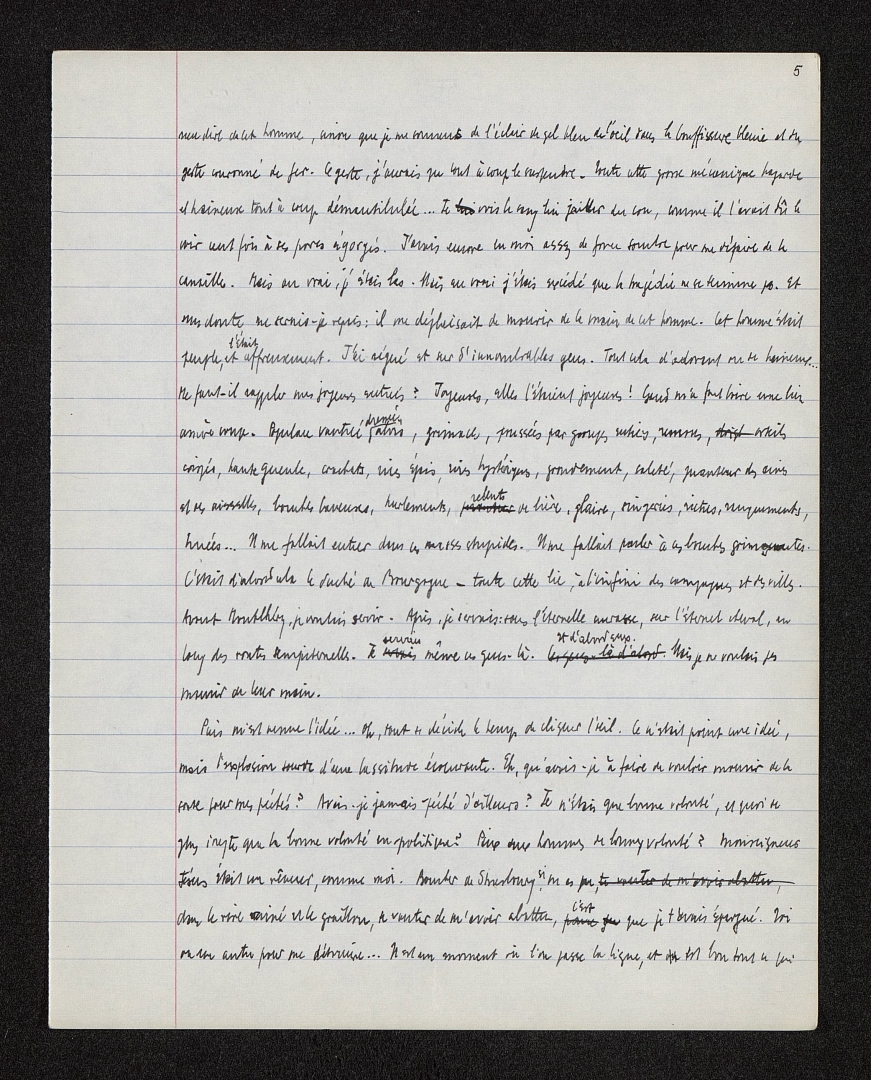 5
me dire cet homme, sinon que je me souviens de l'éclair de gel bleu de l'oeil dans la bouffissure bleuie et du
geste couronné de fer. Ce geste, j'aurais pu tout à coup le suspendre. Toute cette grosse mécanique hagarde
et haineuse tout à coup démantibulée... Je vois le sang lui jaillir du cou, comme il l'avait dû le
voir cent fois à ses porcs égorgés. J'avais encore en moi assez de force pour me défaire de la
canaille. Mais au vrai, j'étais las. Mais au vrai j'étais excédé que la tragédie ne se termine pas. Et
sans doute me serais-je repris : il me déplaisait de mourir de la main de cet homme. Cet homme était
peuple, et l'était affreusement. J'ai régné et sur d'innombrables gens. Tout cela d'adorant ou de haineux...
Me faut-il rappeler mes joyeuses entrées ? Joyeuses, elles l'étaient joyeuses ! Gand m'a fait boire une bien
amère coupe. Populace vautrée, grimace, poussées par groupes,
corigés, haute gueule, crachats, cris épais, cris hystériques, grondement, saleté, puanteur des aines
et des aisselles, bouches baveuses, hurlements, relents de bière, glaire, singeries, rictus,
huées... Il me fallait entrer dans ces masses stupides. Il me fallait parler à ces bouches grimaçantes.
C'était d'abord cela le duché de Bourgogne – toute cette lie, à l'infini des campagnes et des villes.
Avant Montlhéry, je voulais servir. Après, je servais : sous l'éternelle cuirasse, sur l'éternel cheval, au
long des routes sempiternelles. Je servais même ces gens-là. et d'abord eux. Mais je ne voulais pas
mourir de leur main.
Puis m'est venue l'idée... Oh, tout se décide le temps de cligner l'oeil. Ce n'était point une idée,
mais l'explosion sourde d'une lassitude écoeurante. Eh, qu'avais-je à faire de vouloir mourir de la
sorte pour mes péchés ? Avais-je jamais péché d'ailleurs ? Je n'étais que bonne volonté, et quoi de
plus inepte que la bonne volonté en politique ? Paix aux hommes de bonne volonté ? Monseigneur
Jésus était un rêveur, comme moi. Boucher de Strasbourg, si tu as pu, te vanter de m'avoir abattu,
dans le rôle et le graillon, te vanter de m'avoir abattu, c'est que je t'avais épargné. Toi
ou un autre pour me détruire... Il est un moment où l'on passe la ligne, et est bon tout ce qui